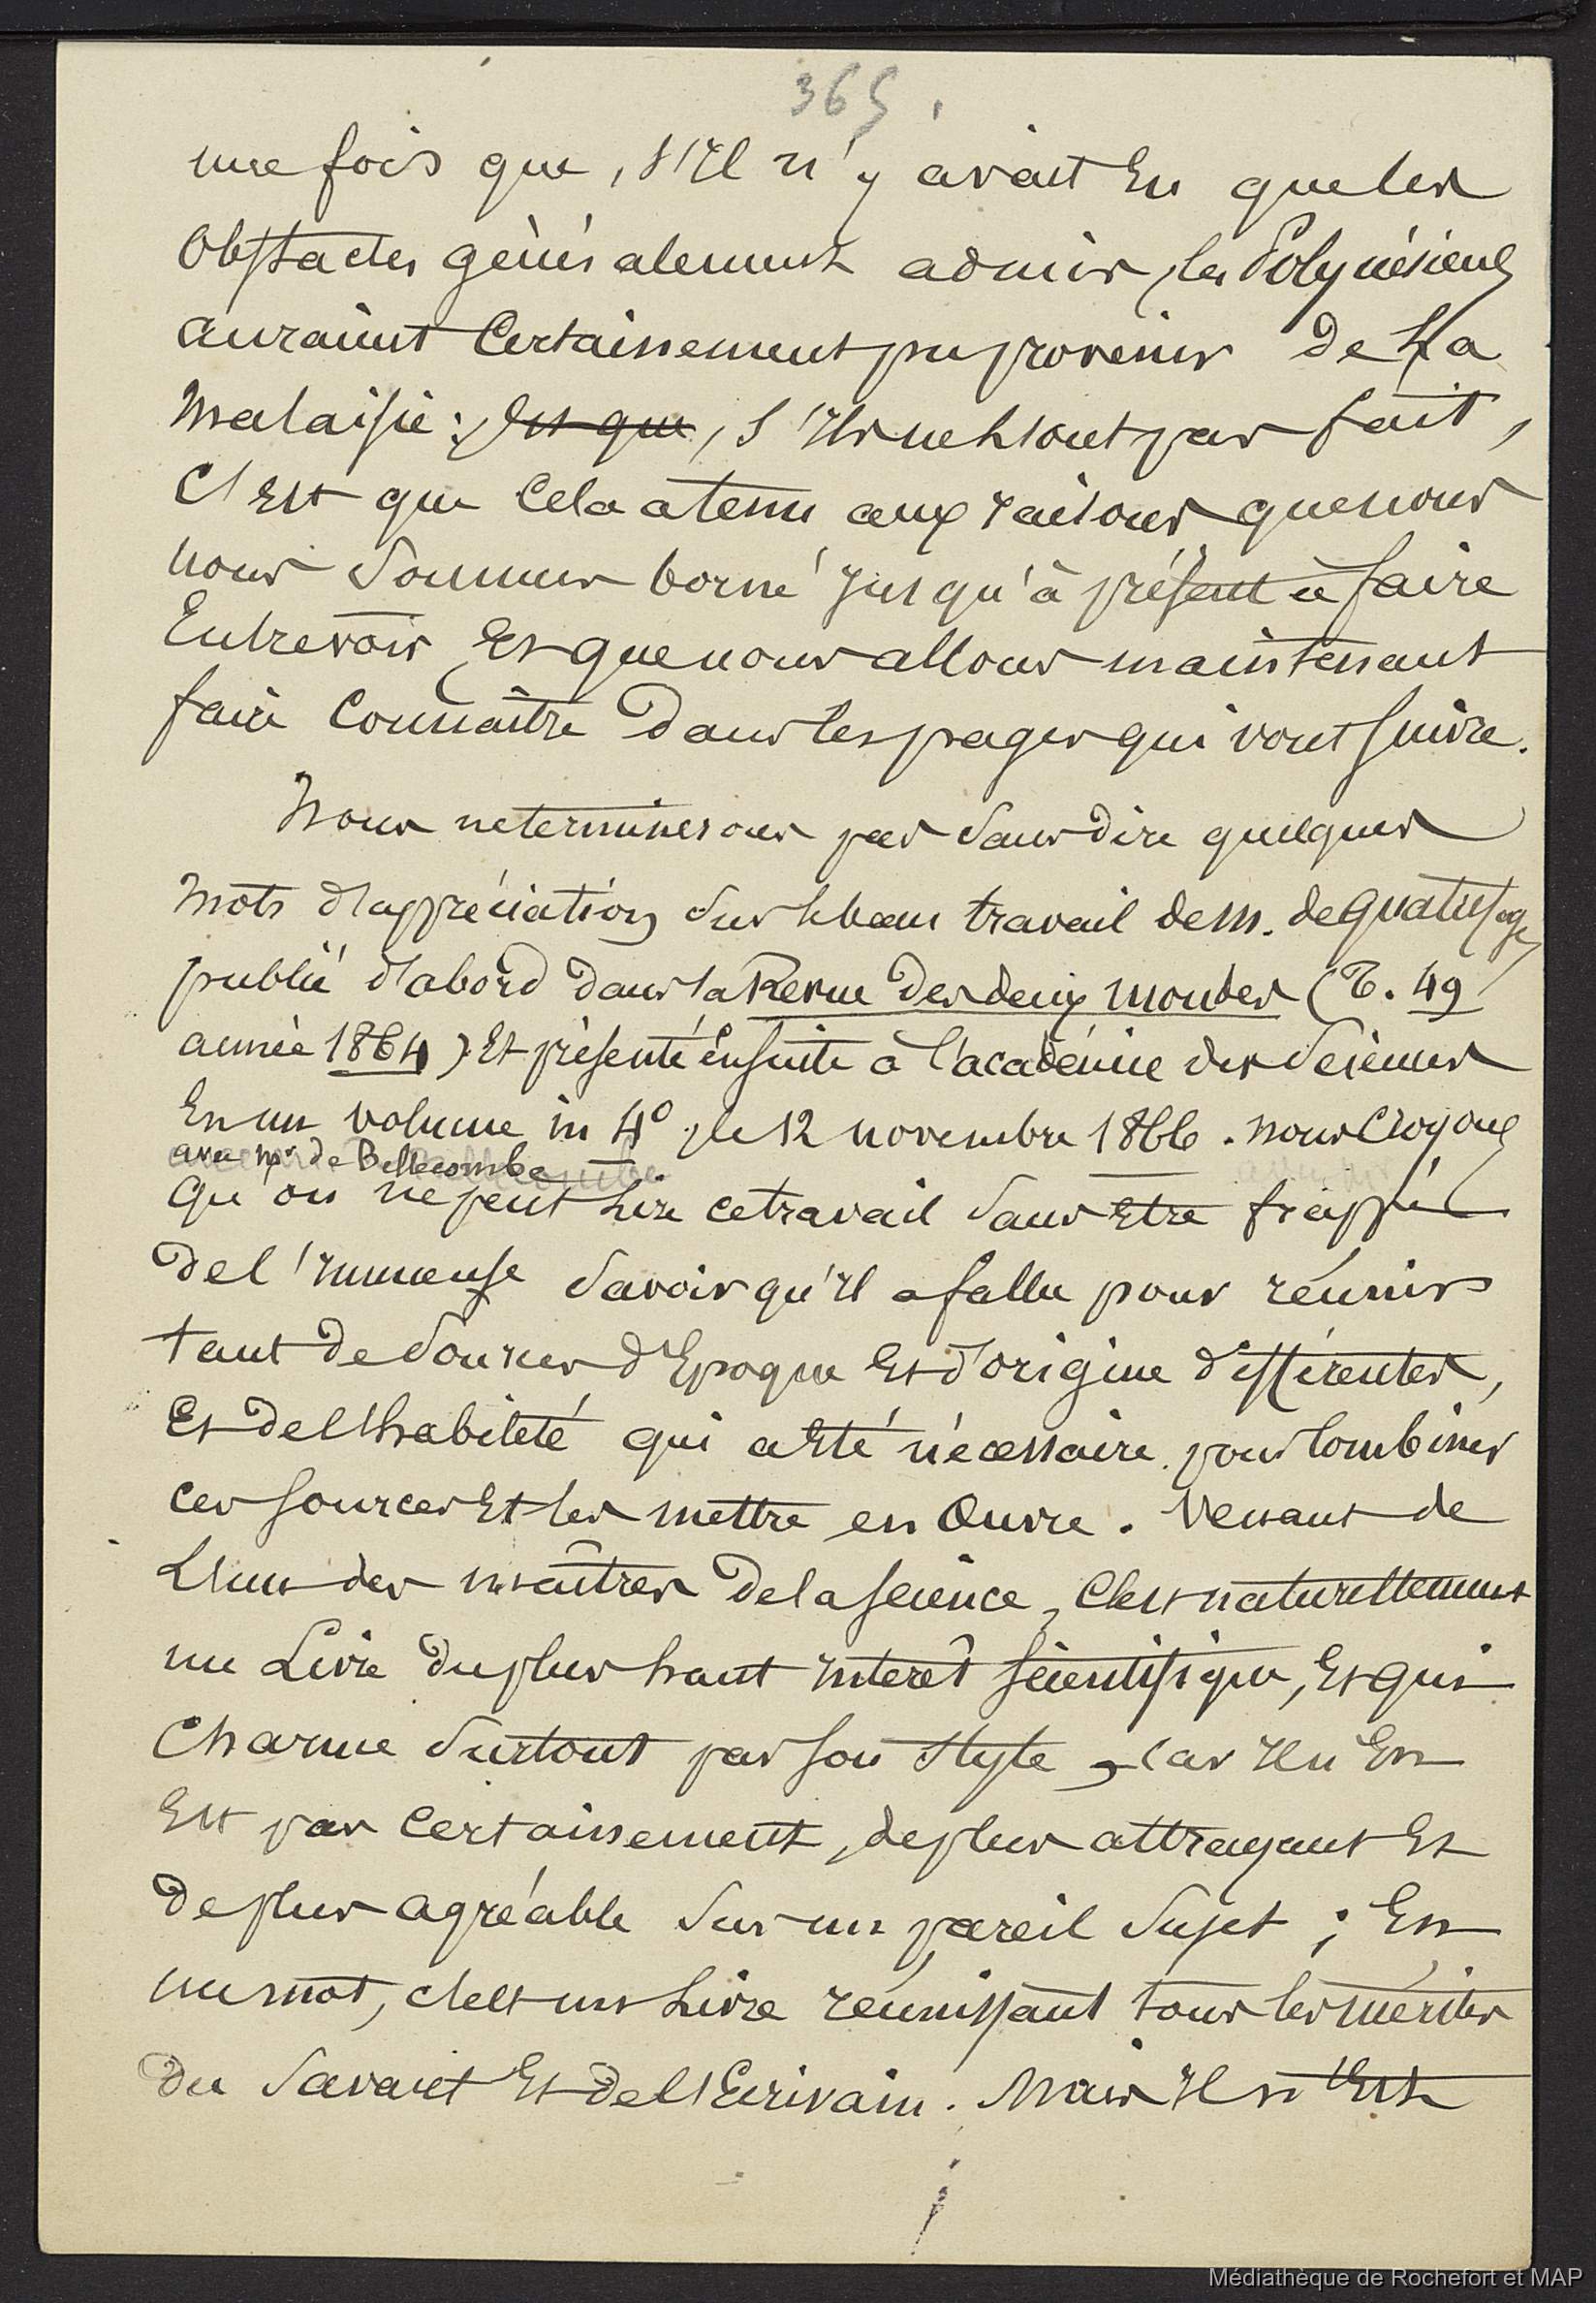 365.
une fois que, s'Il n'y avait Eu que les
Obstacles généralement admis, les Polynésiens
auraient Certainement pu provenir de La
Malaisie : Est que, s'Ils ne L'ont pas fait,
C'Est que Cela a tenu aux raisons que nous
nous Sommes borné Jusqu'à présent à faire
Entrevoir Et que nous allons maintenant
faire Connaître Dans les pages qui vont suivre.
Nous ne terminerons pas Sans Dire quelques
mots d'appréciation Sur le beau travail de M. de quatrefages
publié d'abord Dans la Revue Des deux mondes (T. 49
année 1864) Et présenté ensuite à l'académie des Sciences
En un volume in 4º, le 12 novembre 1866. Nous Croyons
avec Mr de Bellecombe
qu'on ne peut Lire ce travail Sans Etre frappé
De l'Immense Savoir qu'Il a fallu pour réunir
tant De Sources d'Epoque Et d'origine différentes,
Et De l'habileté qui a Eté nécessaire pour Combiner
ces sources Et les mettre en Œuvre. Venant de
L'un des maîtres De la science, C'est naturellement
un Livre Du plus haut Interêt scientifique, Et qui
Charme Surtout par son Style, car Il n'En
Est pas Certainement, de plus attrayant Et
De plus agréable Sur un pareil Sujet ; En
un mot, c'est un Livre réunissant tous les mérites
Du Savant Et De l'Ecrivain. Mais Il n'Est
Médiathèque de Rochefort et MAP